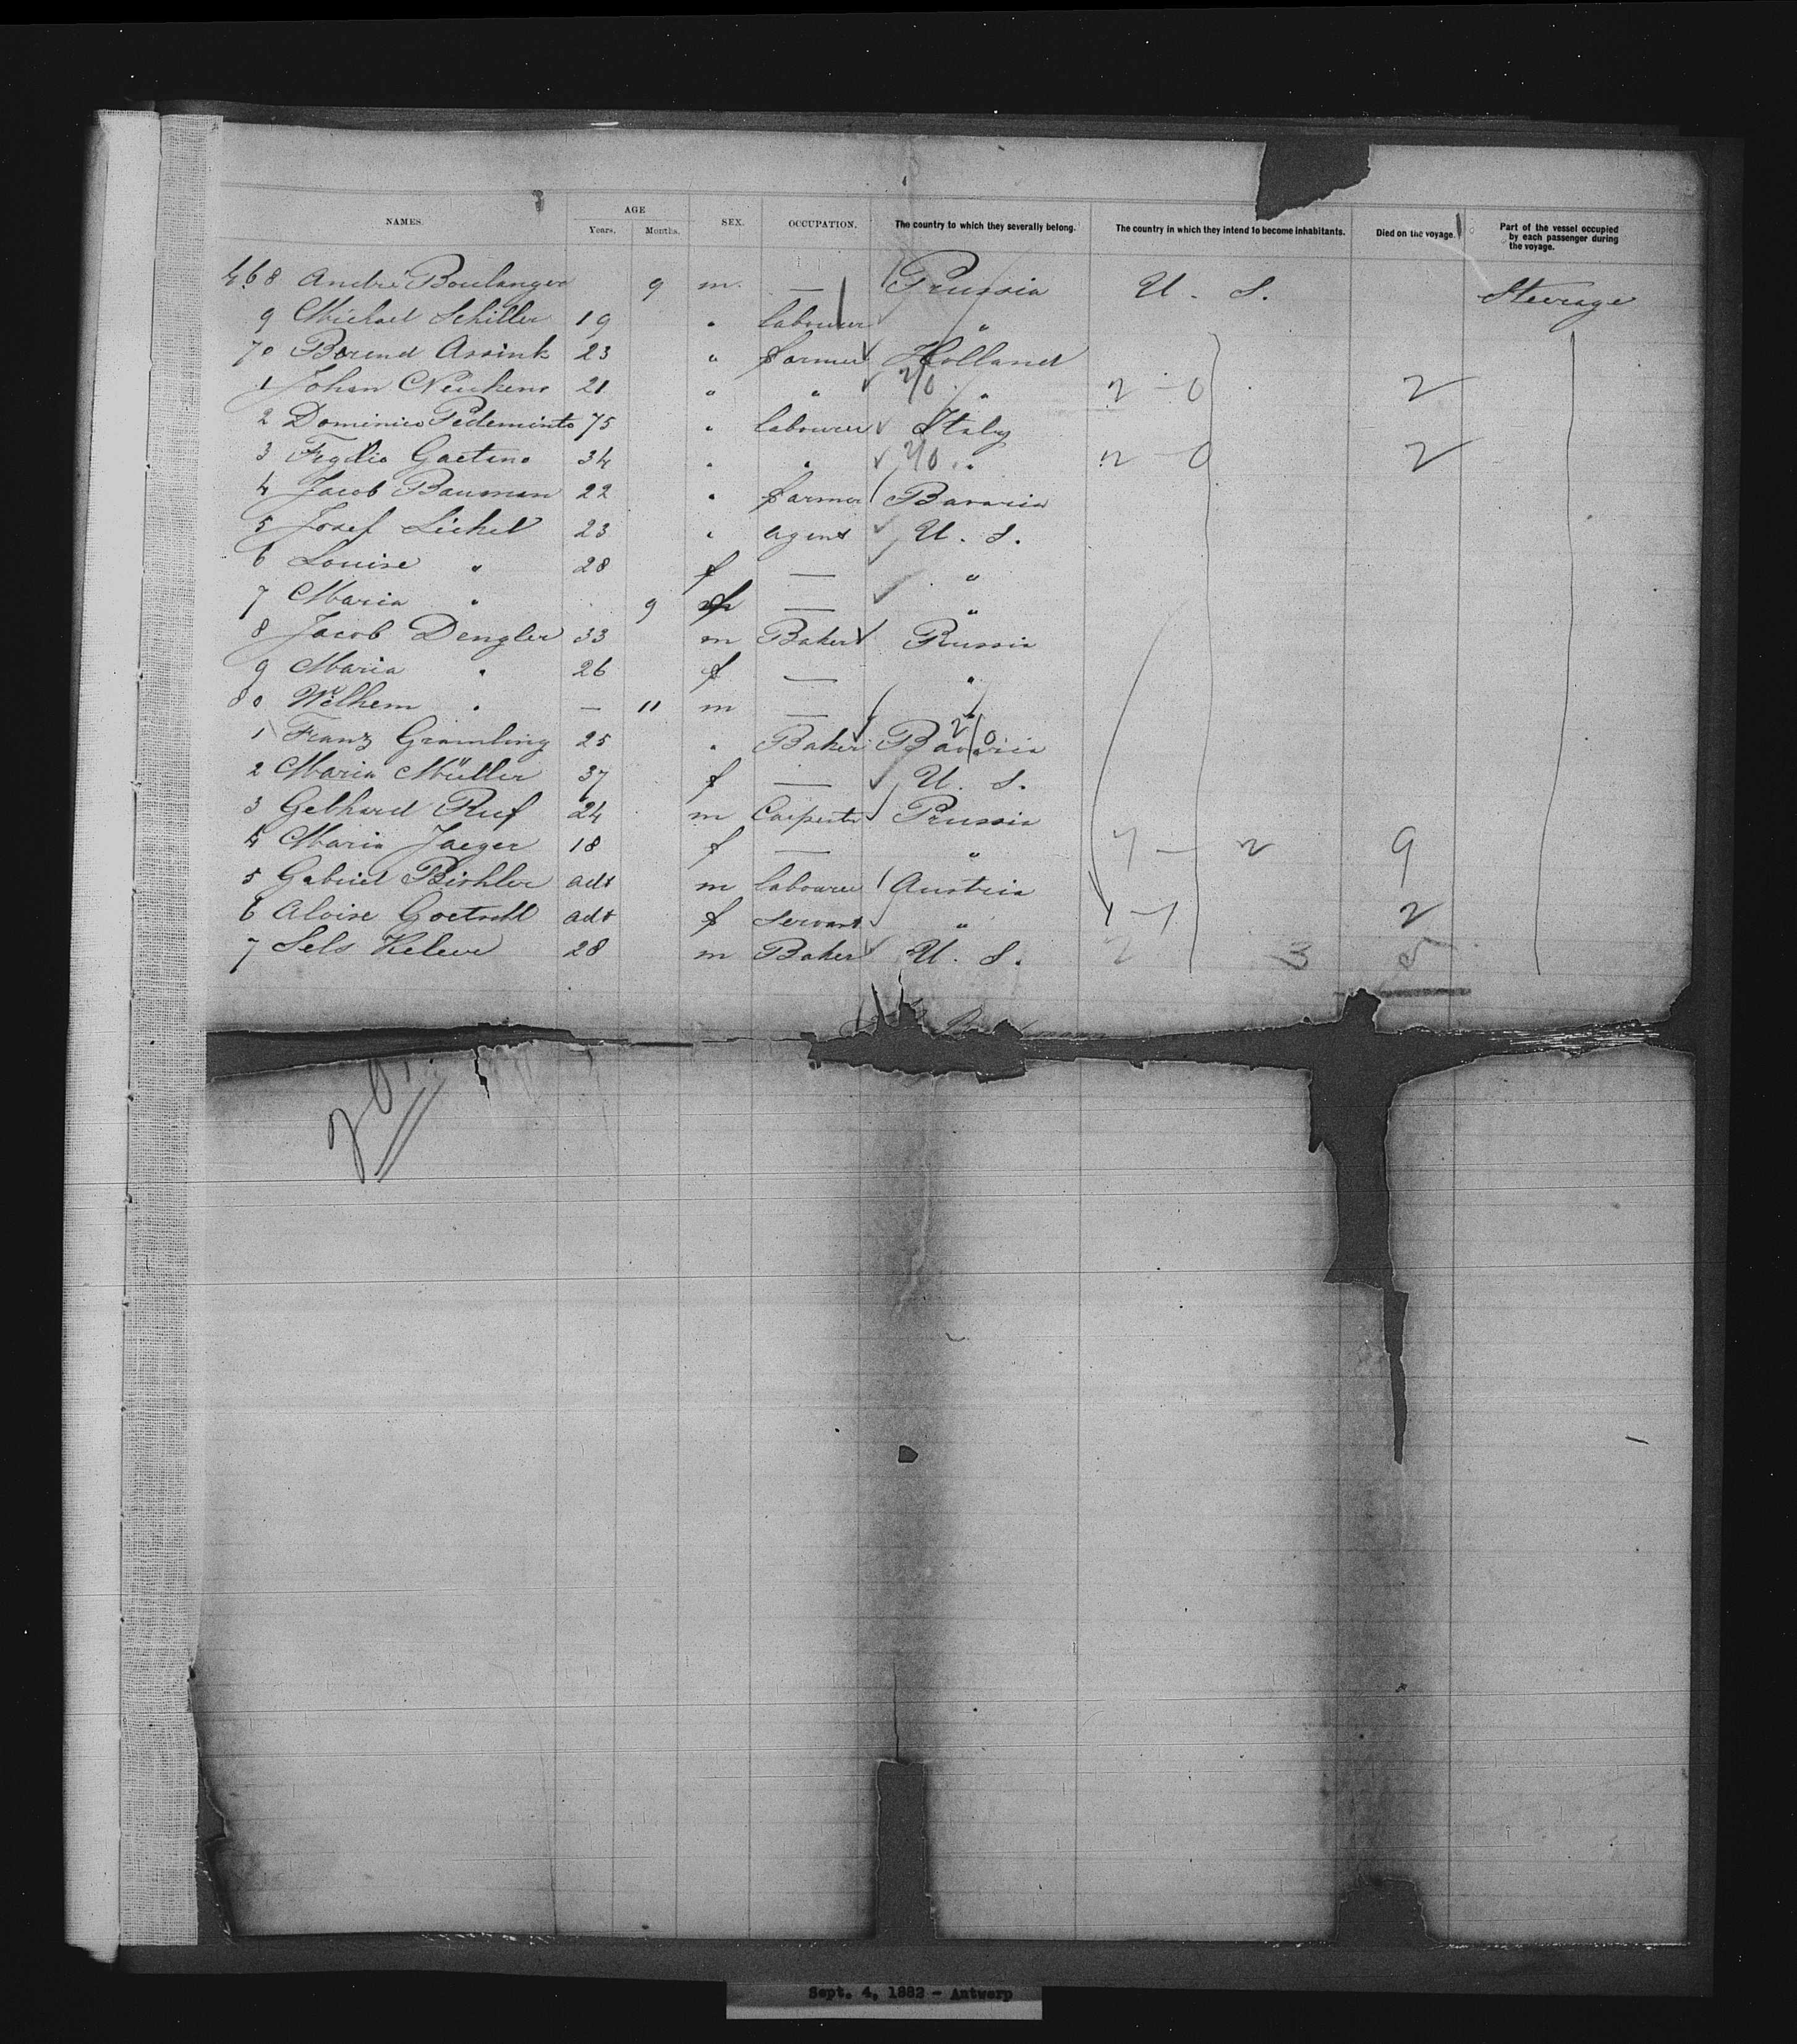 NAMES. AGE SEX. OCCUPATION. The country to which they severally belong. The country in which they intend to become inhabitants. Died on the voyage. Part of the vessel occupied by each passenger during the voyage.
Years. Months.
468 Andre Boulanger 9 m. — Prussia U. S. Steerage
9 Michael Schiller 19 " labourer "
70 Berend Assink 23 " farmer Holland
1 Johan 21 " " 2/0 " 2 - 0 2
2 Dominico 75 " labourer Italy
3 Gaetano 34 " " 2/0 " 2 - 0 2
4 Jacob Bauman 22 " farmer Bavaria
5 Josef Lickel 23 " agent U. S.
6 Louise " 28 f — "
7 Maria " 9 f — "
8 Jacob Dengler 33 m Baker Russia
9 Maria " 26 f — "
80 Wilhem " — 11 m — "
1 Franz Gramling 25 " Baker Bavaria 2/0
2 Maria Müller 37 f — U. S.
3 Gebhard Ruf 24 m Carpenter Prussia
4 Maria Jaeger 18 f — " 7 - 2 9
5 Gabriel adt m labourer Austria
6 Aloise adt f Servant " 1 - 1 2
7 Sels 28 m Baker U. S. 2 3 5
Sept. 4, 1882 - Antwerp